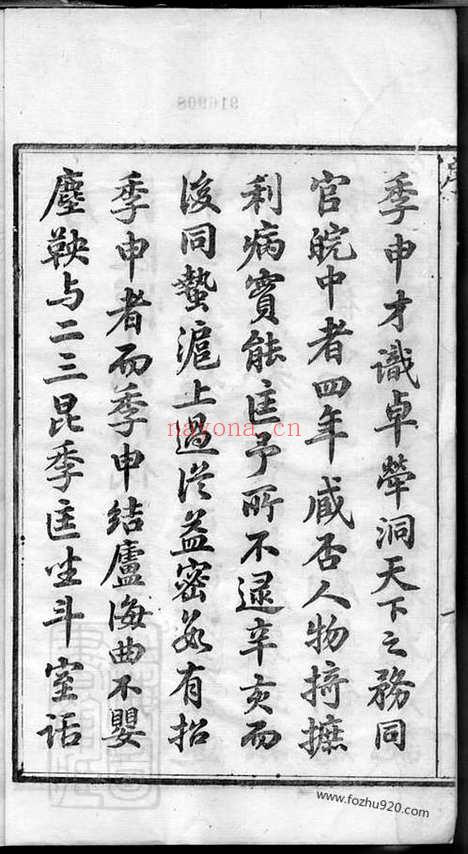 916908
序
季申才識卓犖洞天下之務同
官皖中者四年臧否人物掎摭
利病實能匡予所不逮辛亥而
後同蟄滬上過從益密每有招
季申者而季申結廬海曲不嬰
塵鞅与二三昆季匡坐斗室話
nayona.cn
www.fozhu920.com